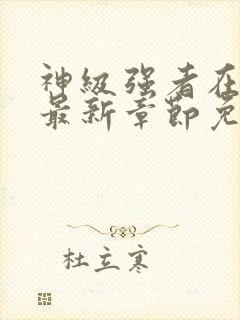 神级强者在
最新章节免
杜立寒